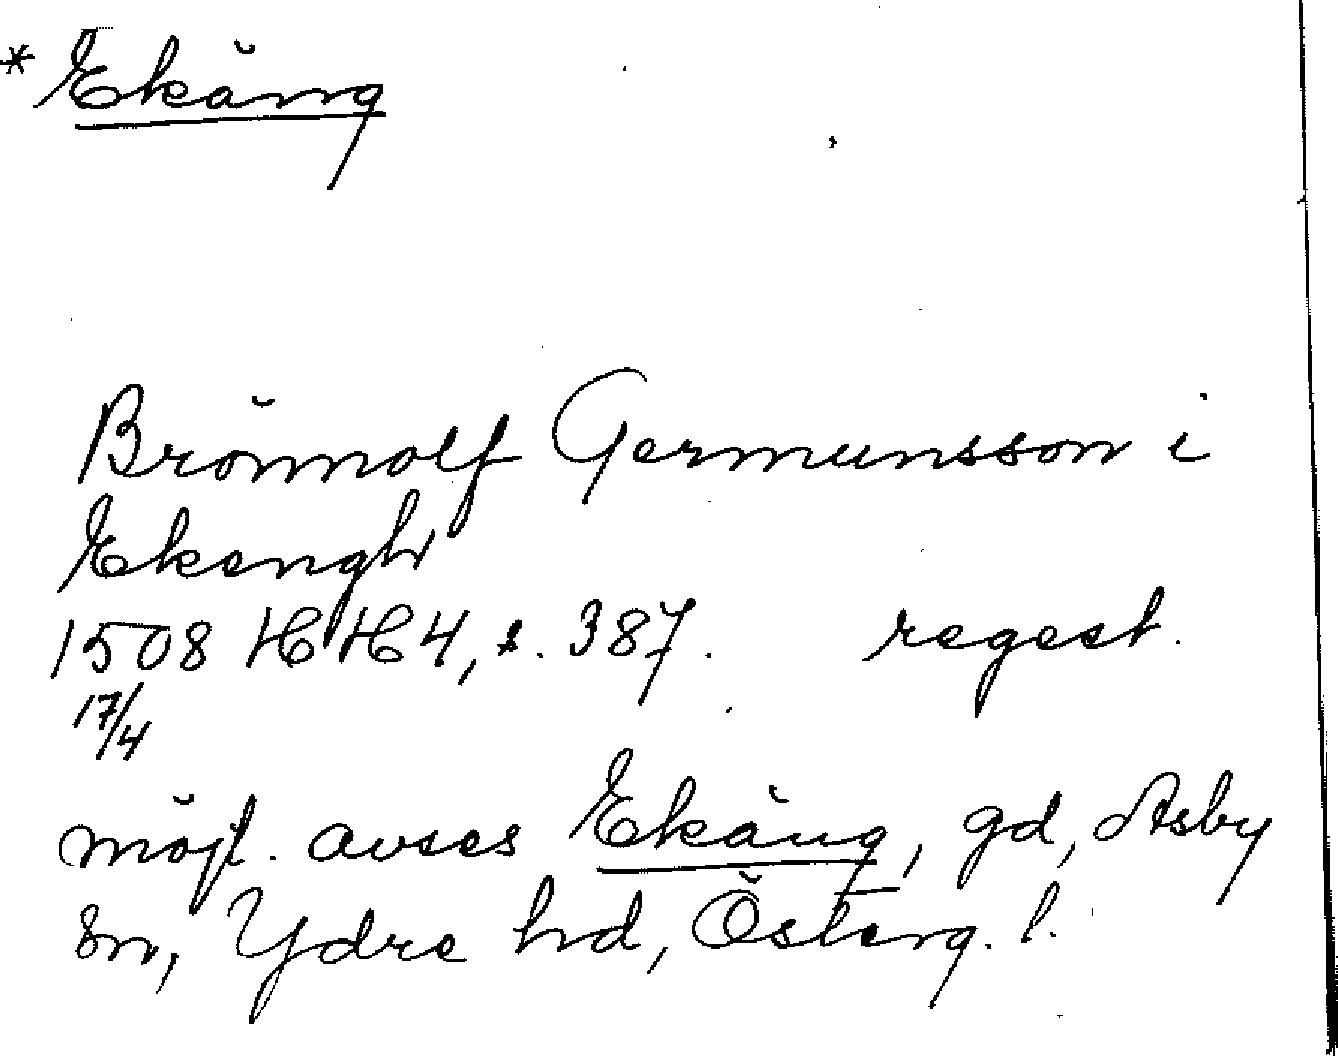 * Ekäng
Brönnolf Germunsson i
Ekengh
1508 HH 4, s. 387. regest.
17/4
möjl. avses Ekäng, gd, Asby
sn, Ydre hd, Österg. l.